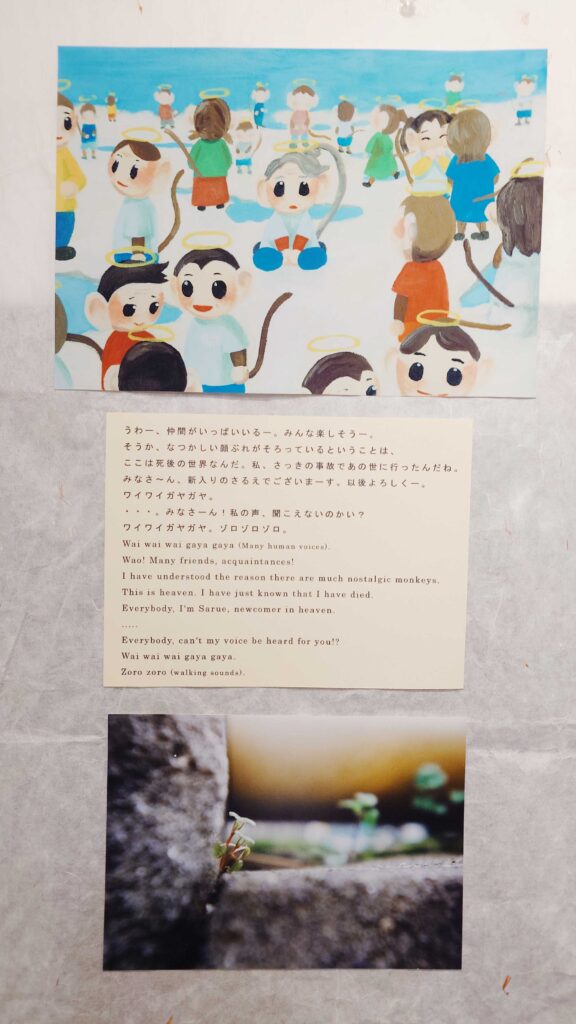 うわー、仲間がいっぱいいるー。みんな楽しそうー。
そうか、なつかしい顔ぶれがそろっているということは、
ここは死後の世界なんだ。私、さっきの事故であの世に行ったんだね。
みなさ〜ん、新入りのさるえでございまーす。以後よろしくー。
ワイワイガヤガヤ。
・・・。みなさーん！私の声、聞こえないのかい？
ワイワイガヤガヤ。ゾロゾロゾロ。
Wai wai wai gaya gaya (Many human voices).
Wao! Many friends, acquaintances!
I have understood the reason there are much nostalgic monkeys.
This is heaven. I have just known that I have died.
Everybody, I'm Sarue, newcomer in heaven.
.....
Everybody, can't my voice be heard for you!?
Wai wai wai gaya gaya.
Zoro zoro (walking sounds).